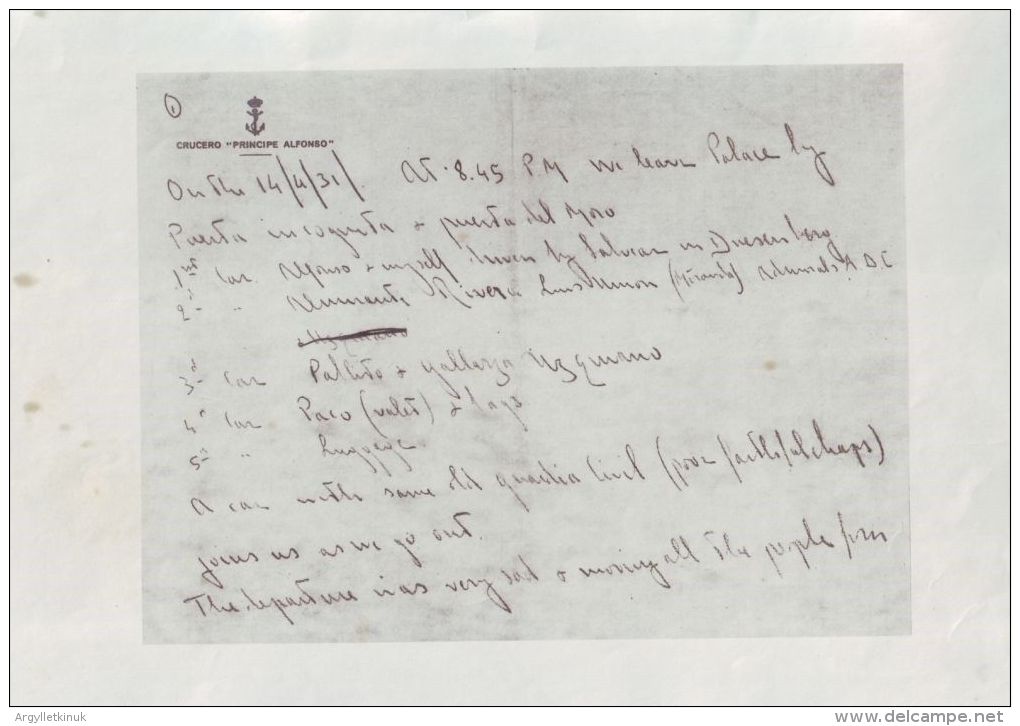 1
CRUCERO "PRINCIPE ALFONSO"
On the 14/4/31/. At 8.45 P.M we leave Palace by
Puerta incognita + puerta del Moro
1st Car Alfonso + myself driven by in Duesenberg
2d " Almirante Rivera (Miranda) Admirals A.D.C
3d Car + Gallarza Uzquiano
4 Car Paco (valet) +
5 " Luggege
A car with some old guardia Civil (poor faithful chaps)
joins us as we go out.
The departure was very sad + moving all the people from
Argylletkinuk
www.delcampe.net